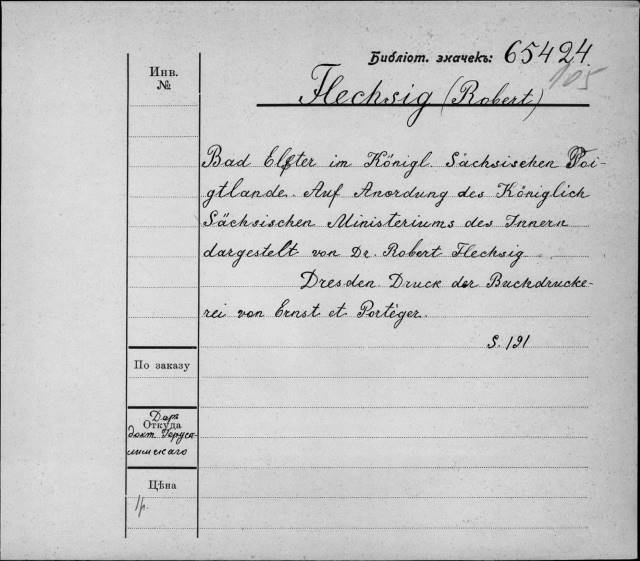 Библіот. значекъ: 65424
105
Инв.
№
Flechsig (Robert)
Bad Elster im Königl. Sächsischen Poi-
gtlande. Auf Anordung des Königlich
Sächsischen Ministeriums des Innern
dargestelt von Dr. Robert Flechsig
Dresden Druck der Buchdrucke-
rei von Ernst et Portéger.
S. 191
По заказу
Откуда
Даръ
докт. Іеруса-
лимскаго
Цѣна
1р.